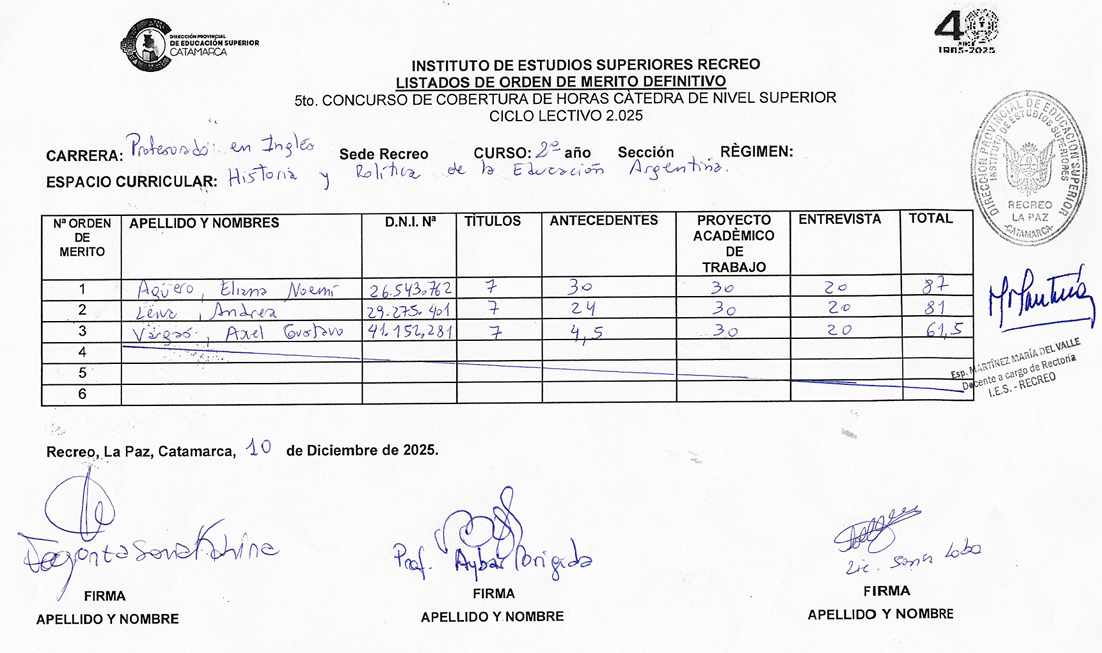 DIRECCIÓN PROVINCIAL
DE EDUCACIÓN SUPERIOR
CATAMARCA
40
AÑOS
1985-2025
INSTITUTO DE ESTUDIOS SUPERIORES RECREO
LISTADOS DE ORDEN DE MERITO DEFINITIVO
5to. CONCURSO DE COBERTURA DE HORAS CÀTEDRA DE NIVEL SUPERIOR
CICLO LECTIVO 2.025
CARRERA: Profesorado en Inglés Sede Recreo CURSO: 2º año Sección RÈGIMEN:
ESPACIO CURRICULAR: Historia y Política de la Educación Argentina.
DIRECCIÓN PROVINCIAL DE EDUCACIÓN SUPERIOR
INSTITUTO DE ESTUDIOS SUPERIORES
RECREO
LA PAZ
-CATAMARCA-
Nª ORDEN DE MERITO APELLIDO Y NOMBRES D.N.I. Nª TÌTULOS ANTECEDENTES PROYECTO ACADÈMICO DE TRABAJO ENTREVISTA TOTAL
1 Agüero, Eliana Noemí 26.543.762 7 30 30 20 87
2 Leiva, Andrea 29.275.401 7 24 30 20 81
3 Vargas, Axel Gustavo 41.152.281 7 4,5 30 20 61,5
4
5
6
Esp. MARTÍNEZ MARÍA DEL VALLE
Docente a cargo de Rectoría
I.E.S. - RECREO
Recreo, La Paz, Catamarca, 10 de Diciembre de 2025.
Prof. Aybar Brigida
Lic. Sonia Loba
FIRMA FIRMA FIRMA
APELLIDO Y NOMBRE APELLIDO Y NOMBRE APELLIDO Y NOMBRE